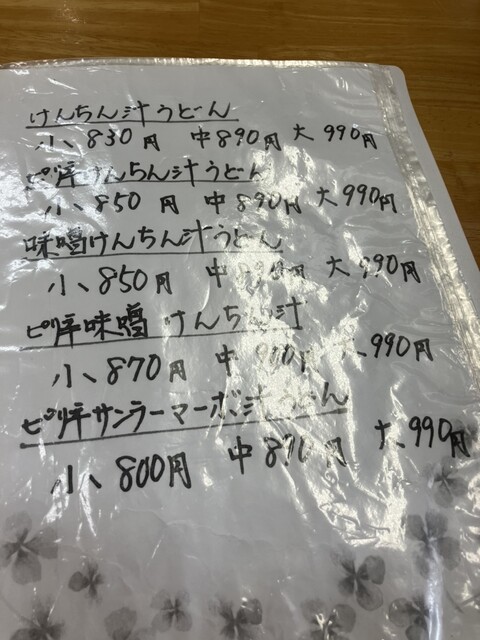 けんちん汁うどん
小 830円 中 890円 大 990円
ピリ辛けんちん汁うどん
小 850円 中 890円 大 990円
味噌けんちん汁うどん
小 850円 中 円 大 990円
ピリ辛味噌けんちん汁
小 870円 中 円 大 990円
ピリ辛サンラーマーボ汁うどん
小 800円 中 円 大 990円